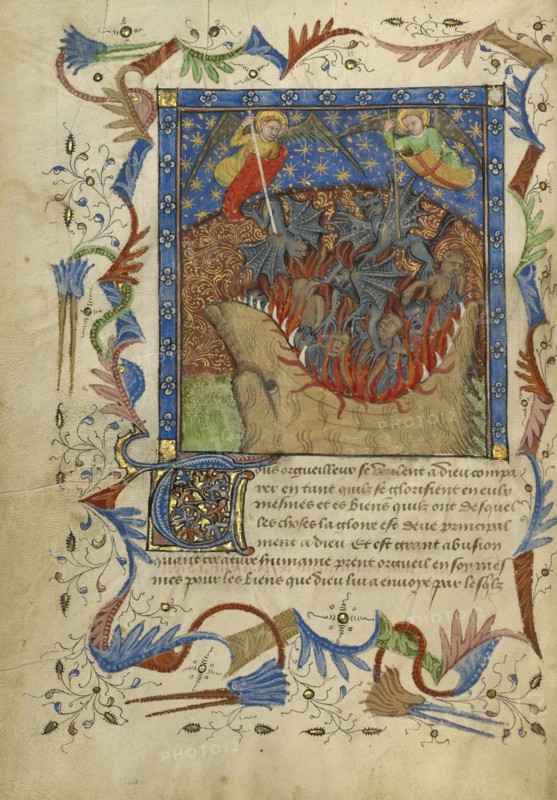 Tous orgueilleux se veulent a dieu compa
rer en tant quilz se glorifient en eulx
mesmes et es biens quilz ont desquel
les choses la gloire est deue principal
ment a dieu. Et est grant abusion
quant creature humaine prent orgueil en soy mes
mes pour les biens que dieu lui a envoye par lesqlz
PHOTO12